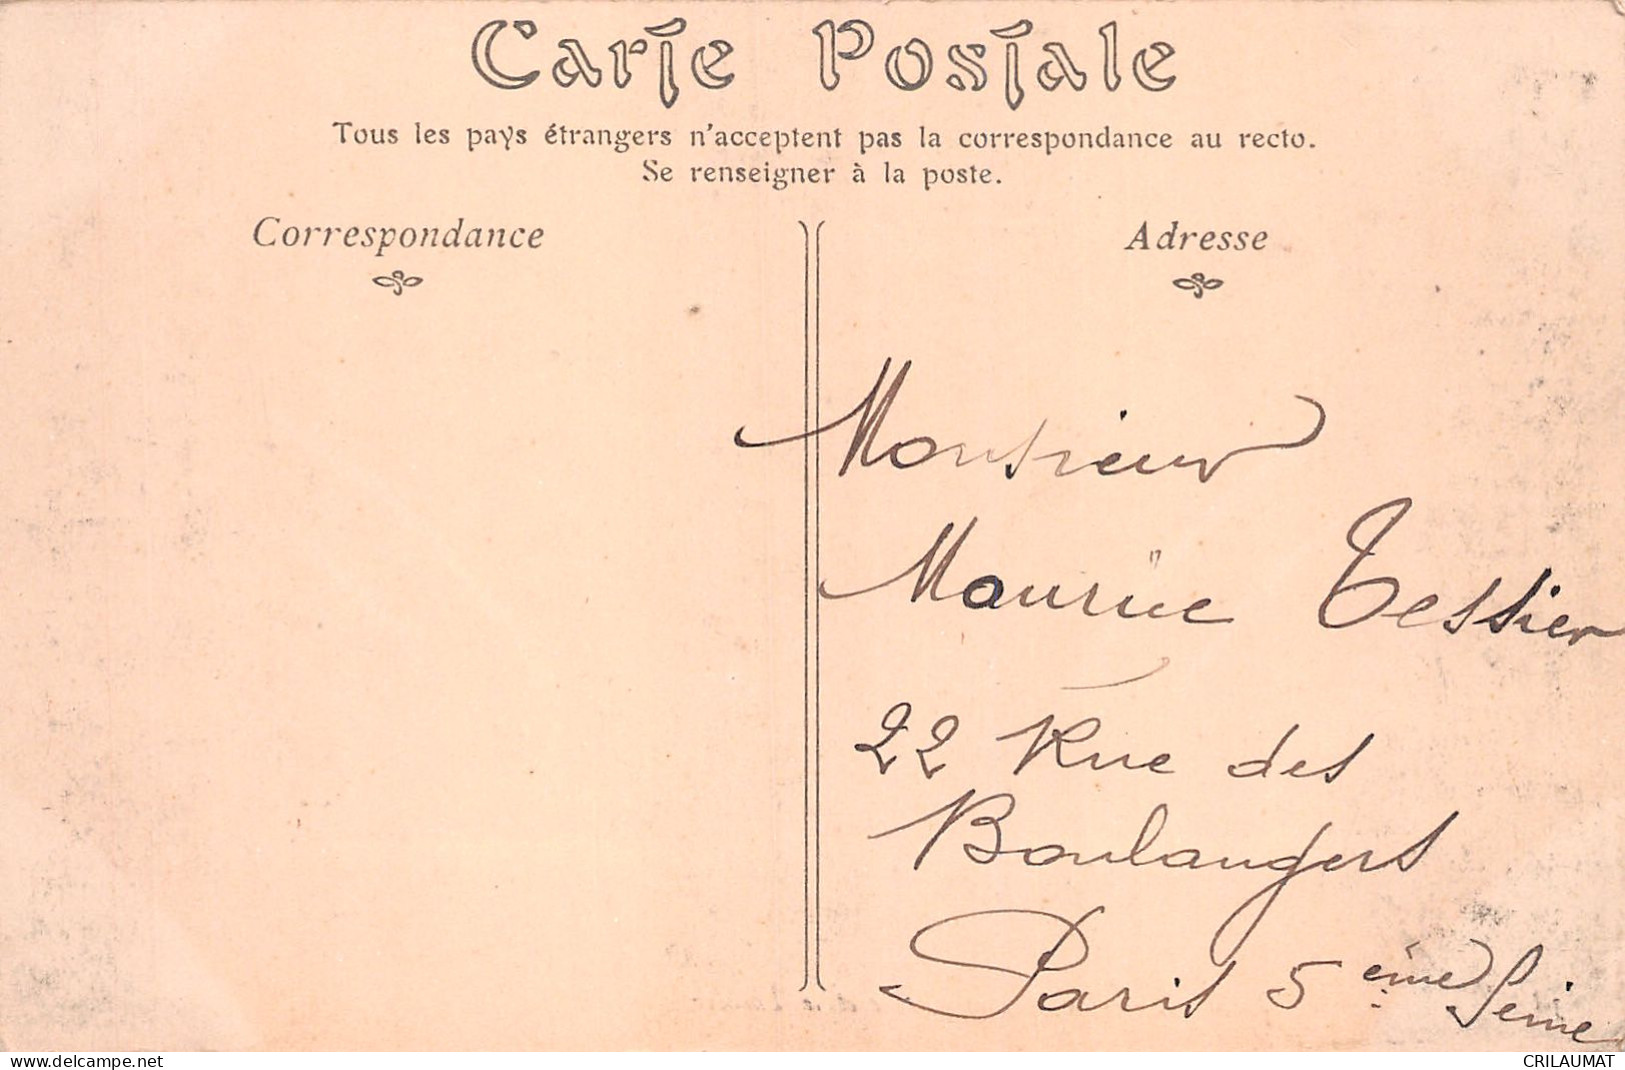 Carte Postale
Tous les pays étrangers n'acceptent pas la correspondance au recto.
Se renseigner à la poste.
Correspondance
Adresse
Monsieur
Maurice Tessier
22 Rue des
Boulangers
Paris 5ème Seine
www.delcampe.net
CRILAUMAT